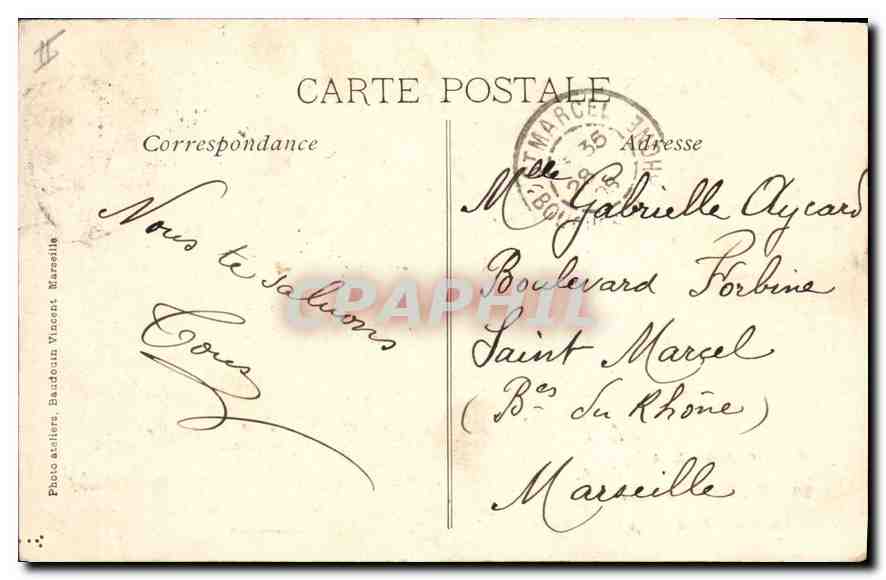 CARTE POSTALE
Correspondance
Adresse
ST MARCEL
RHONE
35
Nous te saluons
Tous
Mlle Gabrielle Aycard
Boulevard Forbine
Saint Marcel
(Bes du Rhône)
Marseille
CPAPHIL
Photo ateliers, Baudouin Vincent Marseille